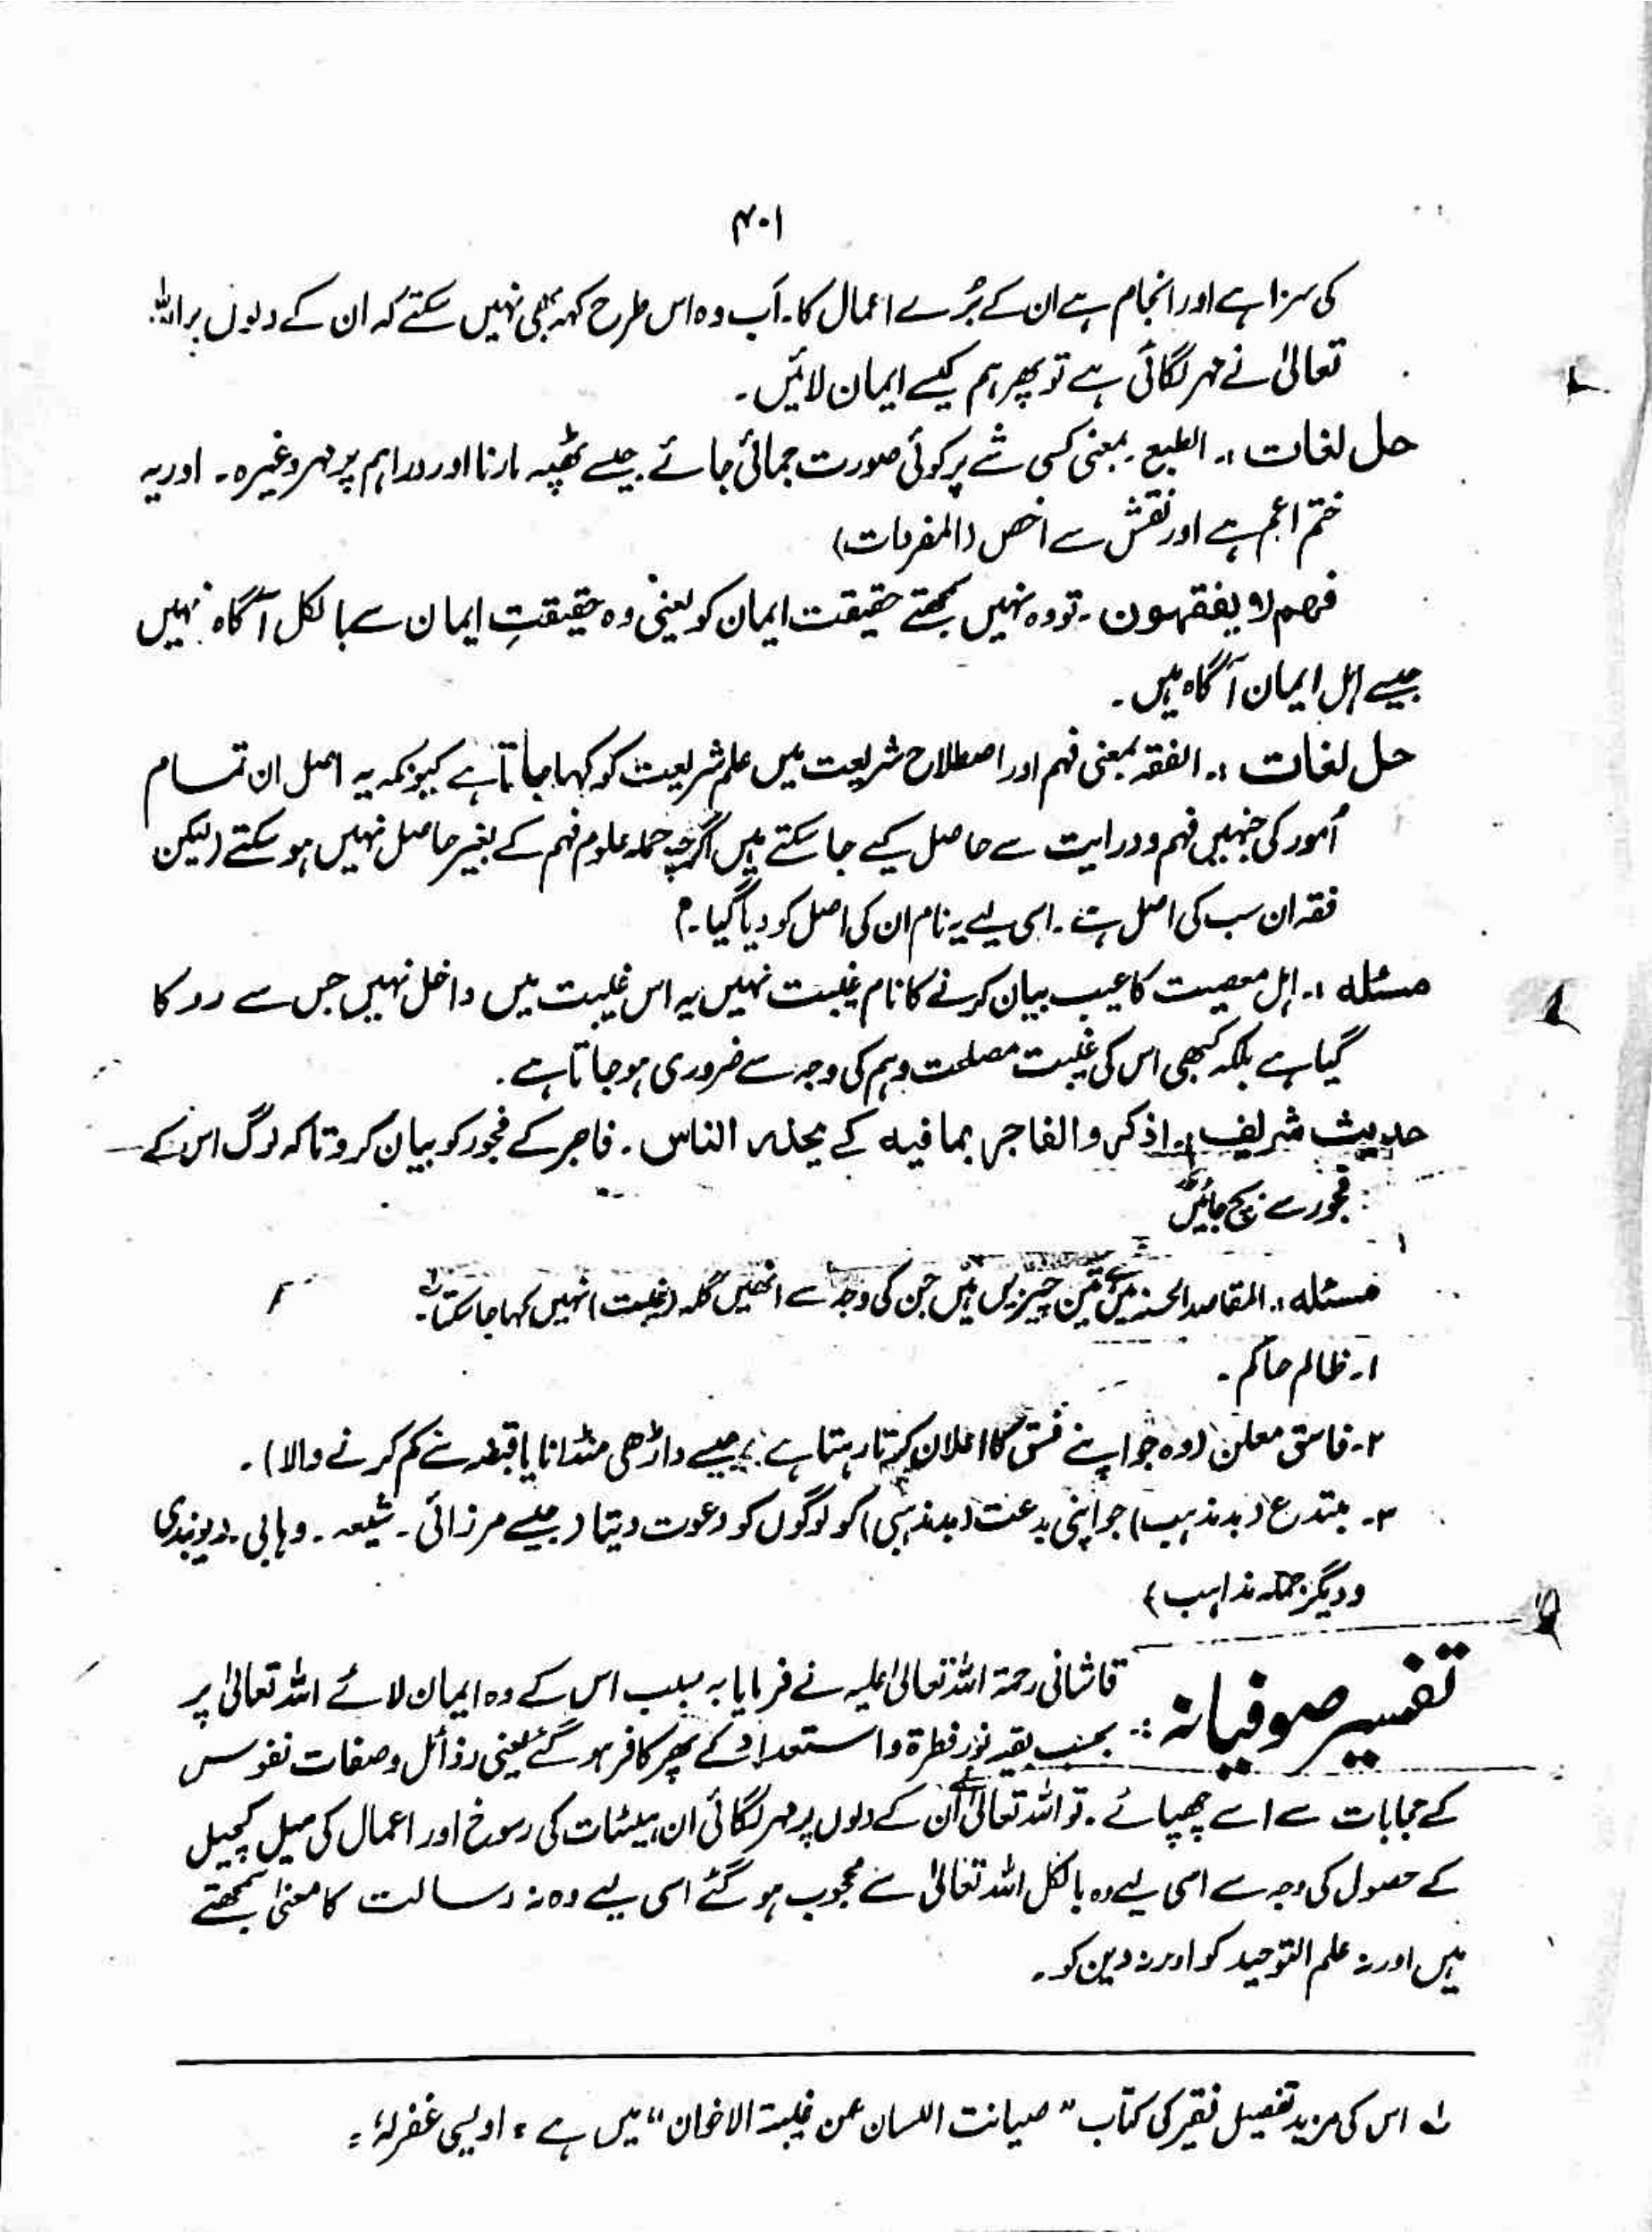 ۴۰۱
کی سزا ہے اور انجام ہے ان کے بُرے اعمال کا۔ اَب وہ اس طرح کہہ بھی نہیں سکتے کہ ان کے دلوں پر اللہ
تعالیٰ نے مہر لگائی ہے تو پھر ہم کیسے ایمان لائیں۔
حل لغات :۔ الطبع۔ بمعنی کسی شے پر کوئی صورت جمائی جائے۔ جیسے ٹھپہ مارنا اور دراہم پر مہر وغیرہ۔ اور یہ
ختم اعم ہے اور نقش سے اخص (المفردات)
فھم لا یفقھون۔ تو وہ نہیں سمجھتے حقیقت ایمان کو یعنی وہ حقیقتِ ایمان سے بالکل آگاہ نہیں
جیسے اہل ایمان آگاہ ہیں۔
حل لغات :۔ الفقہ بمعنی فہم اور اصطلاح شریعت میں علم شریعت کو کہا جاتا ہے کیونکہ یہ اصل ان تمام
اُمور کی جنہیں فہم و درایت سے حاصل کیے جا سکتے ہیں اگرچہ جملہ علوم فہم کے بغیر حاصل نہیں ہو سکتے (لیکن
فقہ ان سب کی اصل ہے۔ اسی لیے یہ نام ان کی اصل کو دیا گیا۔)
مسئلہ :۔ اہل معصیت کا عیب بیان کرنے کا نام غیبت نہیں یہ اس غیبت میں داخل نہیں جس سے روکا
گیا ہے بلکہ کبھی اس کی غیبت مصلحت وہم کی وجہ سے ضروری ہو جاتا ہے۔
حدیث شریف :۔ اذکروا الفاجر بما فیہ کے یحذر الناس۔ فاجر کے فجور کو بیان کرو تاکہ لوگ اس کے
فجور سے بچ جائیں
مسئلہ :۔ المقاصد الحسنہ میں ہے تین چیزیں ہیں جن کی وجہ سے انھیں گلہ (غیبت) نہیں کہا جا سکتا۔
۱۔ ظالم حاکم۔
۲۔ فاسق معلن (وہ جو اپنے فسق کا اعلان کرتا رہتا ہے جیسے داڑھی منڈانا یا قبضہ سے کم کرنے والا)۔
۳۔ مبتدع (بدمذہب) جو اپنی بدعت (بدمذہبی) کو لوگوں کو دعوت دیتا (جیسے مرزائی۔ شیعہ۔ وہابی۔ دیوبندی
و دیگر جملہ مذاہب)
تفسیر صوفیانہ :۔ قاشانی رحمۃ اللہ تعالیٰ علیہ نے فرمایا بہ سبب اس کے وہ ایمان لائے اللہ تعالیٰ پر
بحسب بقیہ نور فطرۃ و استعداد کے پھر کافر ہو گئے یعنی رذائل و صفات نفوس
کے حجابات سے اسے چھپائے۔ تو اللہ تعالیٰ نے اُن کے دلوں پر مہر لگائی ان ہیئات کی رسوخ اور اعمال کی میل کچیل
کے حصول کی وجہ سے اسی لیے وہ بالکل اللہ تعالیٰ سے محجوب ہو گئے اسی لیے وہ نہ رسالت کا معنیٰ سمجھتے
ہیں اور نہ علم التوحید کو اور نہ دین کو۔
لہ اس کی مزید تفصیل فقیر کی کتاب "صیانت اللسان عن غیبۃ الاخوان" میں ہے ؛ اویسی غفرلہٗ ؛